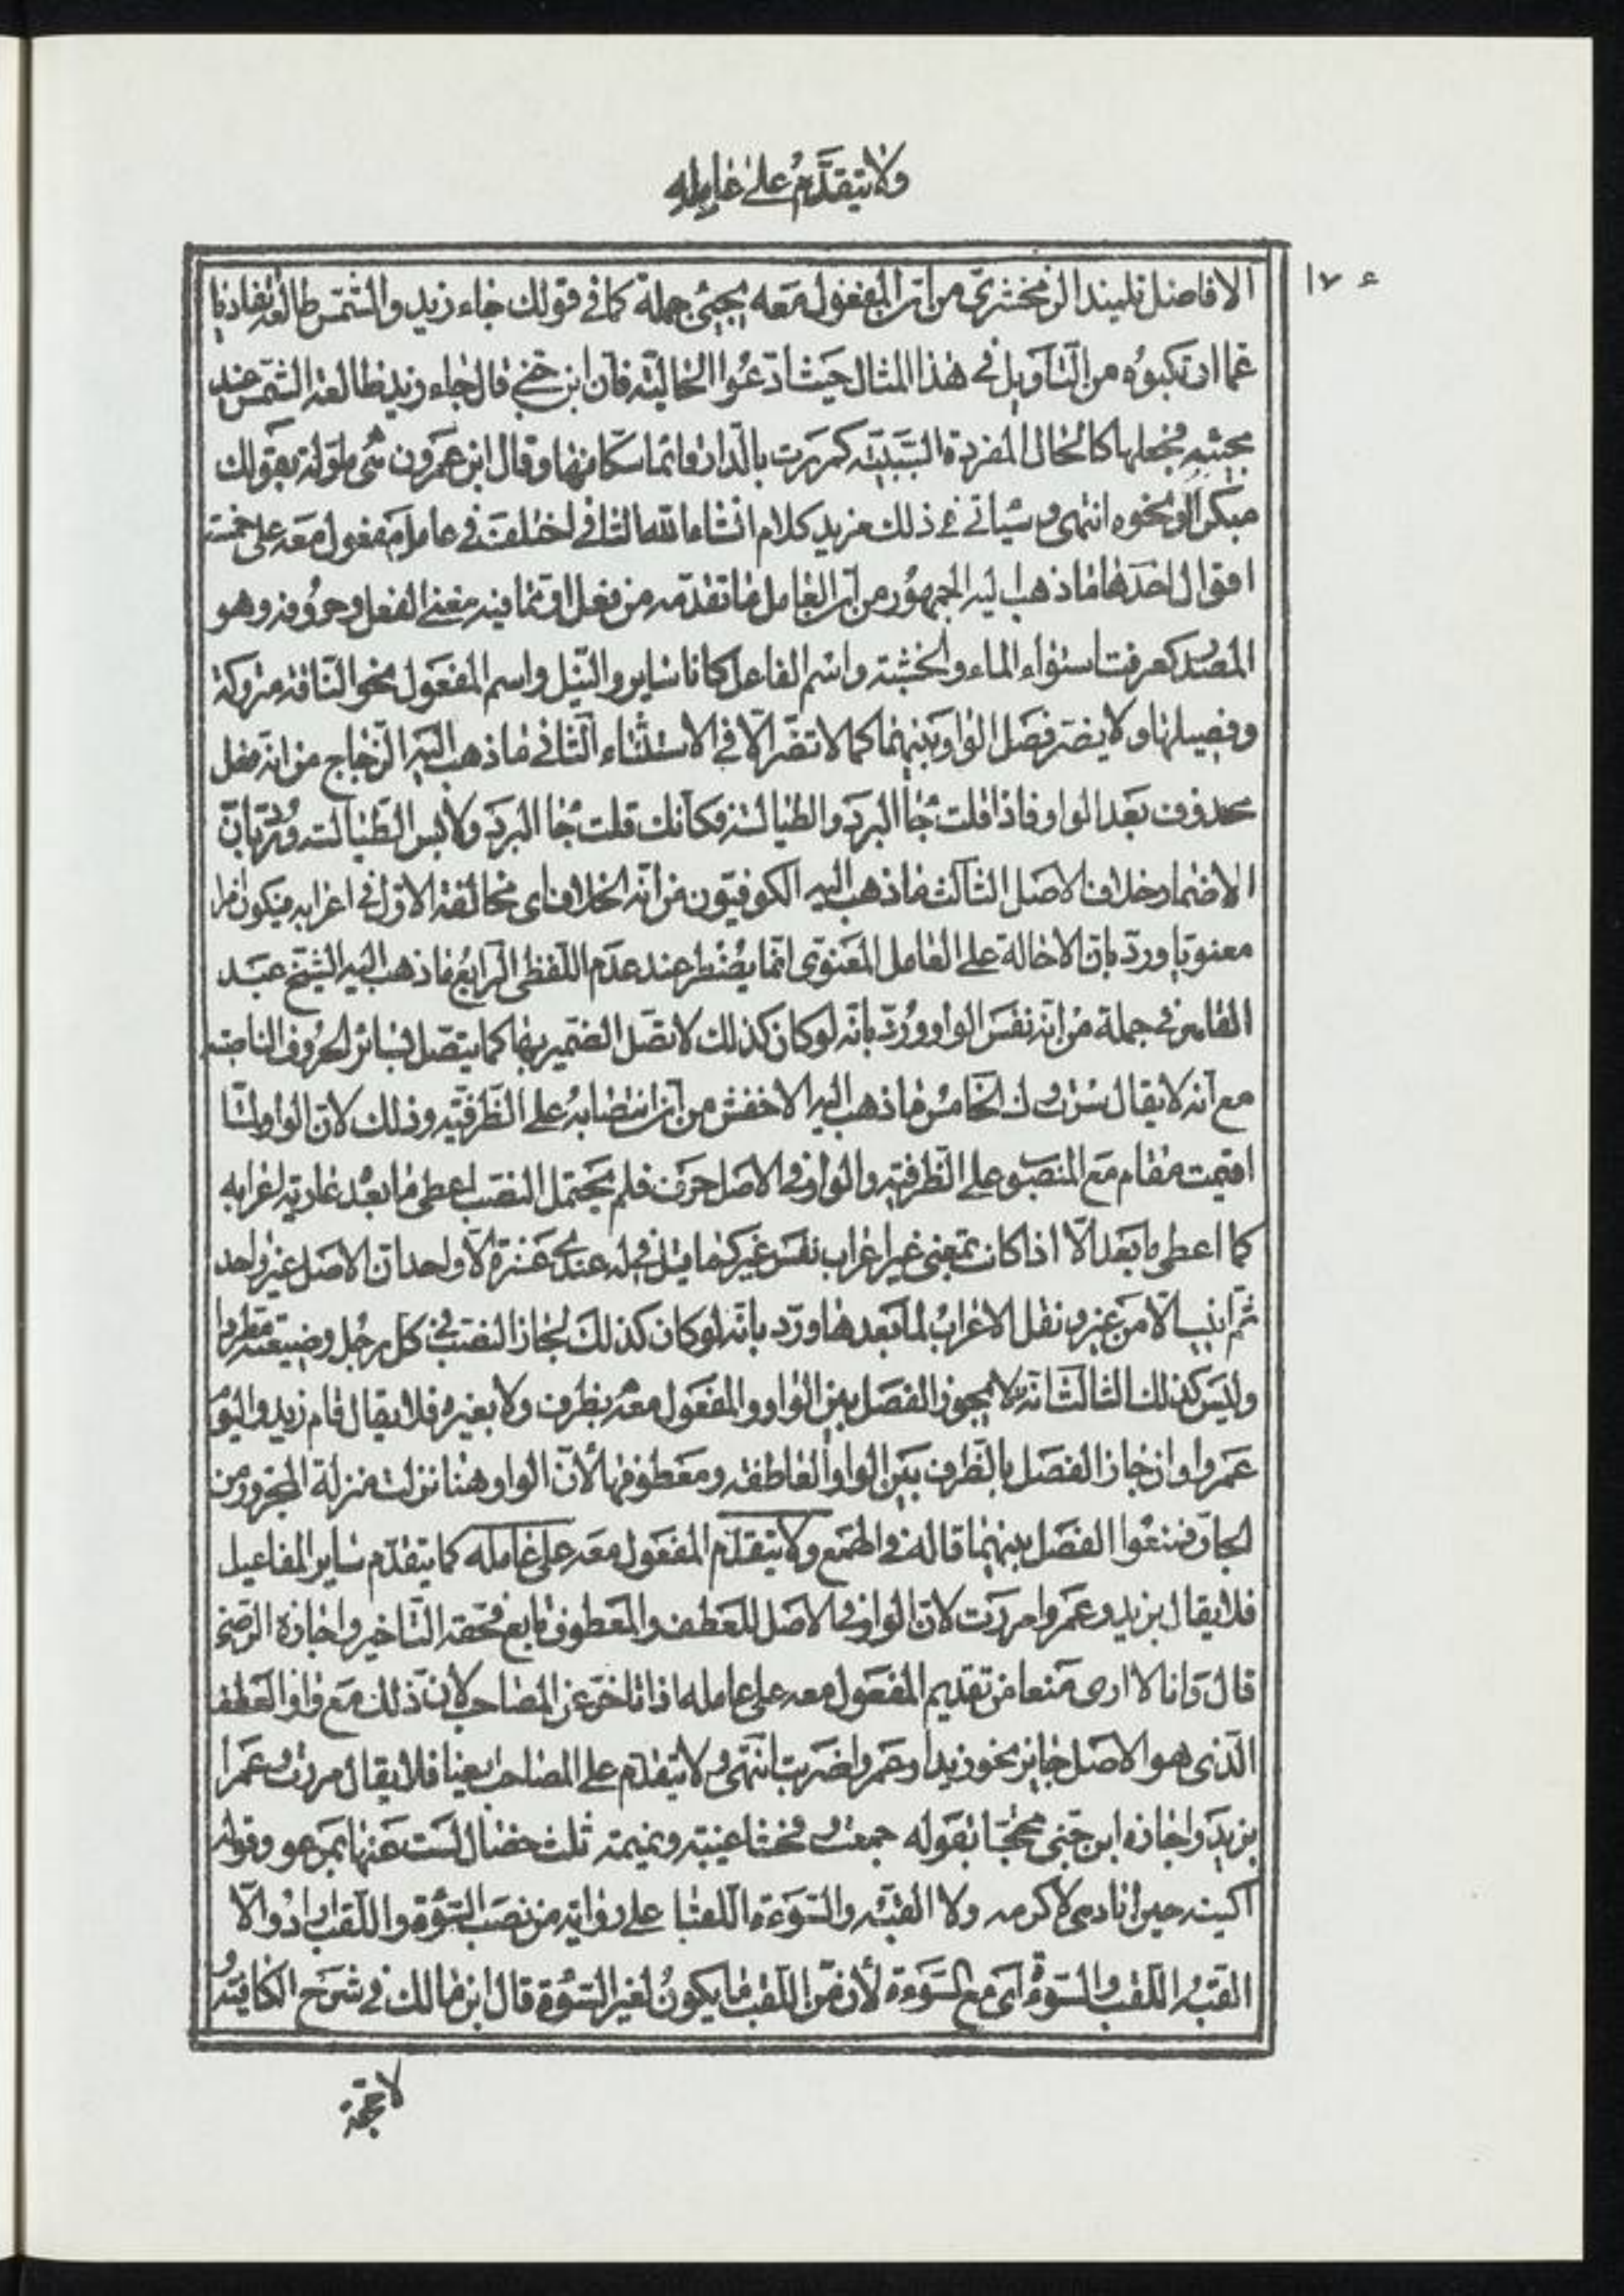 ولا يتقدَّمُ على عامِلِه
١٧٤
الافاضل تلميذ الزمخشريّ من انّ المفعول معه يجيئ جملة كما فى قولك جاء زيد والشّمس طالعة تفاديا
عما ارتكبوُه من التّأويل فى هذا المثال حيث ادّعوا الحاليّة فان ابن جنى قال جاء زيد طالعة الشّمس عند
مجيئه فجعلها كالحال المفردة السّببيّة كمررت بالّدار قائما سكّانها وقال ابن عمرون هى مؤولة بقولك
مبكرا ونحوه انتهى وسياتى فى ذلك مزيد كلام انشاء الله الثانى اختلف فى عامل المفعول معه على خمسة
اقوال احدها ما ذهب اليه الجمهور من انّ العامل ما تقدّمه من فعل او ما فيه معنى الفعل وحروفه وهو
المصدر كعرفت استواء الماء والخشبة واسم الفاعل كانا ساير والنّيل واسم المفعول نحو النّاقة متروكة
وفصيلها ولا يضر فصل الواو بينهما كما لا تضرّ الّا فى الاستثناء الثّانى ما ذهب اليه الزّجاج من انه فعل
محذوف بعد الواو فاذا قلت جاء البرد والطيالسة فكأنك قلت جاء البرد ولابس الطّيالسة وردّ بانّ
الاضمار خلاف الاصل الثالث ما ذهب اليه الكوفيّون من انّه الخلاف اى مخالفة الاوّل فى اعرابه فيكون امرا
معنويّا وردّ بانّ الاحالة على العامل المعنوّى انّما يضطر عند عدم اللّفظى الرّابع ما ذهب اليه الشيخ عبد
القاهر فى جملة من انّه نفس الواو ووُردّ بانّه لو كان كذلك لاتصّل الضّمير بها كما يتصّل فى سائر الحرُوف الناصبة
مع انّه لا يقال سرت وك الخامس ما ذهب اليه الاخفش من انّ انتصابه على الظّرفيّة وذلك لانّ الواو لمّا
اقيمت مقام مع المنصوب على الظّرفية والواو فى الاصل حرف فلم يحتمل النّصب اعطى ما بعد عارية اعرابه
كما اعطى ما بعد الّا اذا كانت بمعنى غير اعراب نفس غير كما قيل فى له عندى عشرة الّا واحد انّ الاصل غير واحد
ثمّ انيب الّا من غير ونقل الاعراب لما بعدها وردّ بانّه لو كان كذلك لجاز النّصب فى كل رجل وضيعته مطردا
وليس كذلك الثالث انّه لا يجوز الفصل بين الواو والمفعول معه بظرف ولا بغيره فلا يقال قام زيد واليوم
عمروا وان جاز الفصل بالظّرف بين الواو العاطفة ومعطوفها لأنّ الواو هنا نزلت منزلة المجرور من
الجارّ فمنعوا الفصل بينهما قاله فى الهمع ولا يتقدّم المفعول معه على عامله كما يتقدّم ساير المفاعيل
فلا يقال بزيد وعمروا مررت لانّ الواو فى الاصل للعطف والمعطوف تابع فحقّه التّاخير واجازه الرّضى
قال وانا لا ارى منعا من تقديم المفعول معه على عامله اذا تاخّر عن المصاحب لانّ ذلك مع واو العطف
الّذى هو الاصل جايز نحو زيدا وعمروا ضربت انتهى ولا يتقدّم على المصاحب ايضا فلا يقال مررت وعمرا
بزيد واجازه ابن جنّى محتجّا بقوله جمعت وفحشا غيبة ونميمة ثلث خصال لست عنها بمرعو وقوله
اكنيه حين اناديه لاكرمه ولا القبّه والسّوءة اللّقبا على رواية من نصب السّوءة واللّقب ارادوا لا
القّبه اللّقب والسّوءة اى مع السّوءة لأن من اللّقب ما يكون لغير السّوءة قال ابن مالك فى شرح الكافية و
لا حجّة